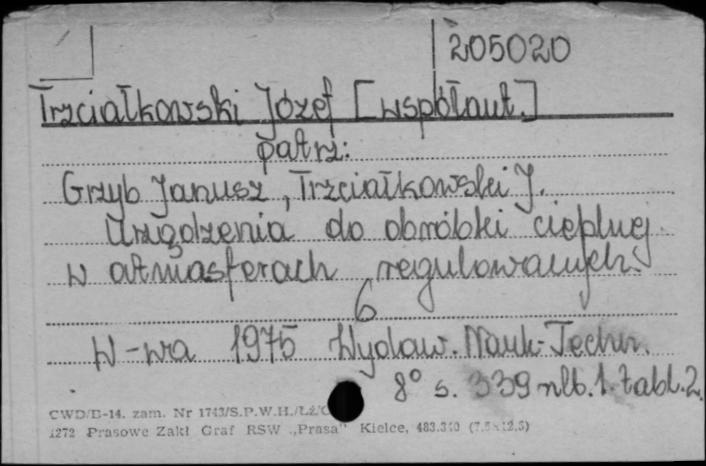 205020
Trzciałkowski Józef [współaut.]
patrz:
Grzyb Janusz, Trzciałkowski J.
Urządzenia do obróbki cieplnej
w atmosferach regulowanych.
6
W-wa 1975 Wydaw. Nauk-Techn.
8° s. 339 nlb. 1. tabl. 2.
CWD/B-14. zam. Nr 1743/S.P.W.H./Łź/
1272 Prasowe Zakł Graf RSW „Prasa" Kielce, 483.340 (7.5×12.5)